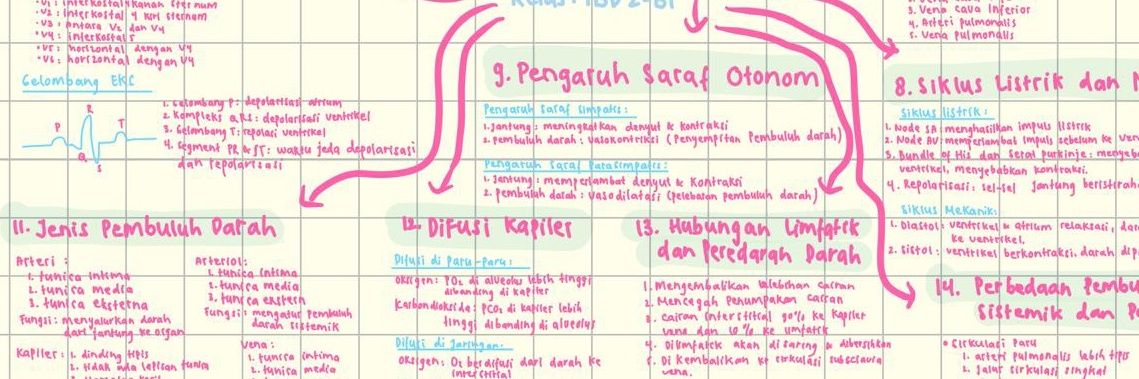 • V1 : intercostal 4 kanan sternum
• V2 : intercostal 4 kiri sternum
• V3 : antara V2 dan V4
• V4 : interkostal 5
• V5 : horizontal dengan V4
• V6 : horizontal dengan V4
Gelombang EKG
P
R
Q
S
T
1. Gelombang P : depolarisasi atrium
2. Kompleks QRS : depolarisasi ventrikel
3. Gelombang T : repolasi ventrikel
4. Segment PR & ST : waktu jeda depolarisasi
dan repolarisasi
9. Pengaruh Saraf Otonom
Pengaruh saraf simpatis :
1. Jantung : meningkatkan denyut & kontraksi
2. pembuluh darah : vasokontriksi (Penyempitan Pembuluh darah)
Pengaruh Saraf Parasimpatis :
1. Jantung : memperlambat denyut & kontraksi
2. pembuluh darah : vasodilatasi (pelebaran pembuluh darah)
3. Vena cava inferior
4. Arteri pulmonalis
5. Vena pulmonalis
8. Siklus Listrik dan
Siklus listrik :
1. Node SA : menghasilkan impuls listrik
2. Node AV : memperlambat impuls sebelum ke ven
3. Bundle of His dan Serat purkinje : menyeba
ventrikel, menyebabkan kontraksi.
4. Repolarisasi : sel-sel jantung beristiraha
Siklus Mekanik :
1. Diastol : ventrikel & atrium relaksasi, dar
ke ventrikel.
2. Sistol : ventrikel berkontraksi. darah dip
11. Jenis Pembuluh Darah
Arteri :
1. tunica intima
2. tunica media
3. tunica eksterna
Fungsi : menyalurkan darah
dari jantung ke organ
Arteriol :
1. tunica intima
2. tunica media
3. tunica ekstern
Fungsi : mengatur pembuluh
darah sistemik
Kapiler : 1. dinding tipis
2. tidak ada lapisan tunica
Vena :
1. tunica intima
2. tunica media
12. Difusi Kapiler
Difusi di Paru-Paru :
Oksigen : PO2 di alveolus lebih tinggi
dibanding di kapiler
Karbondioksida : PCO2 di kapiler lebih
tinggi dibanding di alveolus
Difusi di Jaringan :
Oksigen : O2 berdifusi dari darah ke
interstitial
13. Hubungan Limfatik
dan Peredaran Darah
1. Mengembalikan kelebihan cairan
2. Mencegah penumpakan cairan
3. Cairan interstitial 90% ke kapiler
vena dan 10% ke limfatik
4. Dilimfatik akan disaring & dibersihkan
5. Di kembalikan ke sirkulasi subclavia
vena.
14. Perbedaan Pembu
Sistemik dan P
• Sirkulasi Paru
1. arteri pulmonalis lebih tipis
2. Jalur sirkulasi singkat